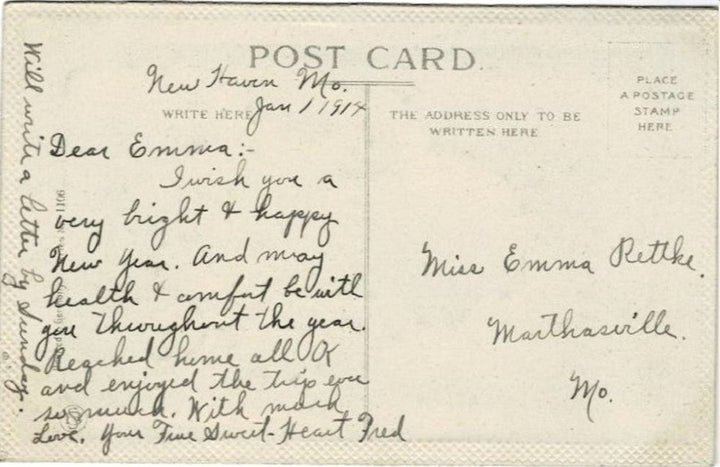 POST CARD.
New Haven Mo.
Jan 1 1914
WRITE HERE
Dear Emma:-
I wish you a
very bright & happy
New Year. And may
health & comfort be with
you throughout the year.
Reached home all OK
and enjoyed the trip ever
so much. With much
Love, Your True Sweet-Heart Fred
Will write a letter by Sunday.
1106
THE ADDRESS ONLY TO BE
WRITTEN HERE
PLACE
A POSTAGE
STAMP
HERE
Miss Emma Rettke.
Marthasville.
Mo.